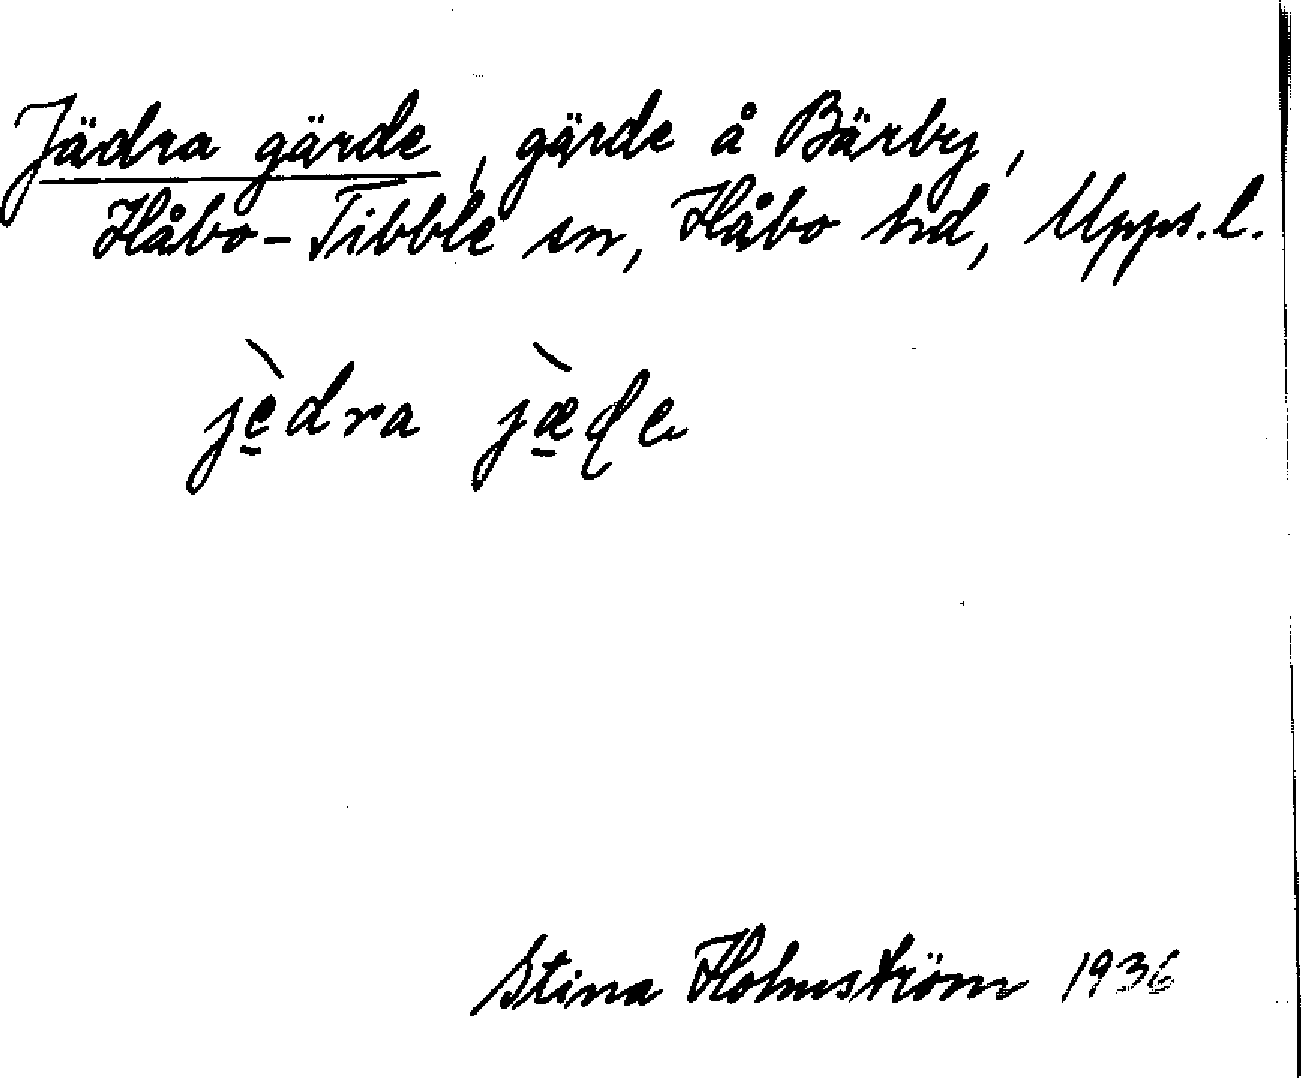 Jädra gärde, gärde å Bärby,
Håbo-Tibble sn, Håbo hd, Upps.l.
jè̱dra jæ̱̀ɖe
Stina Holmström 1936